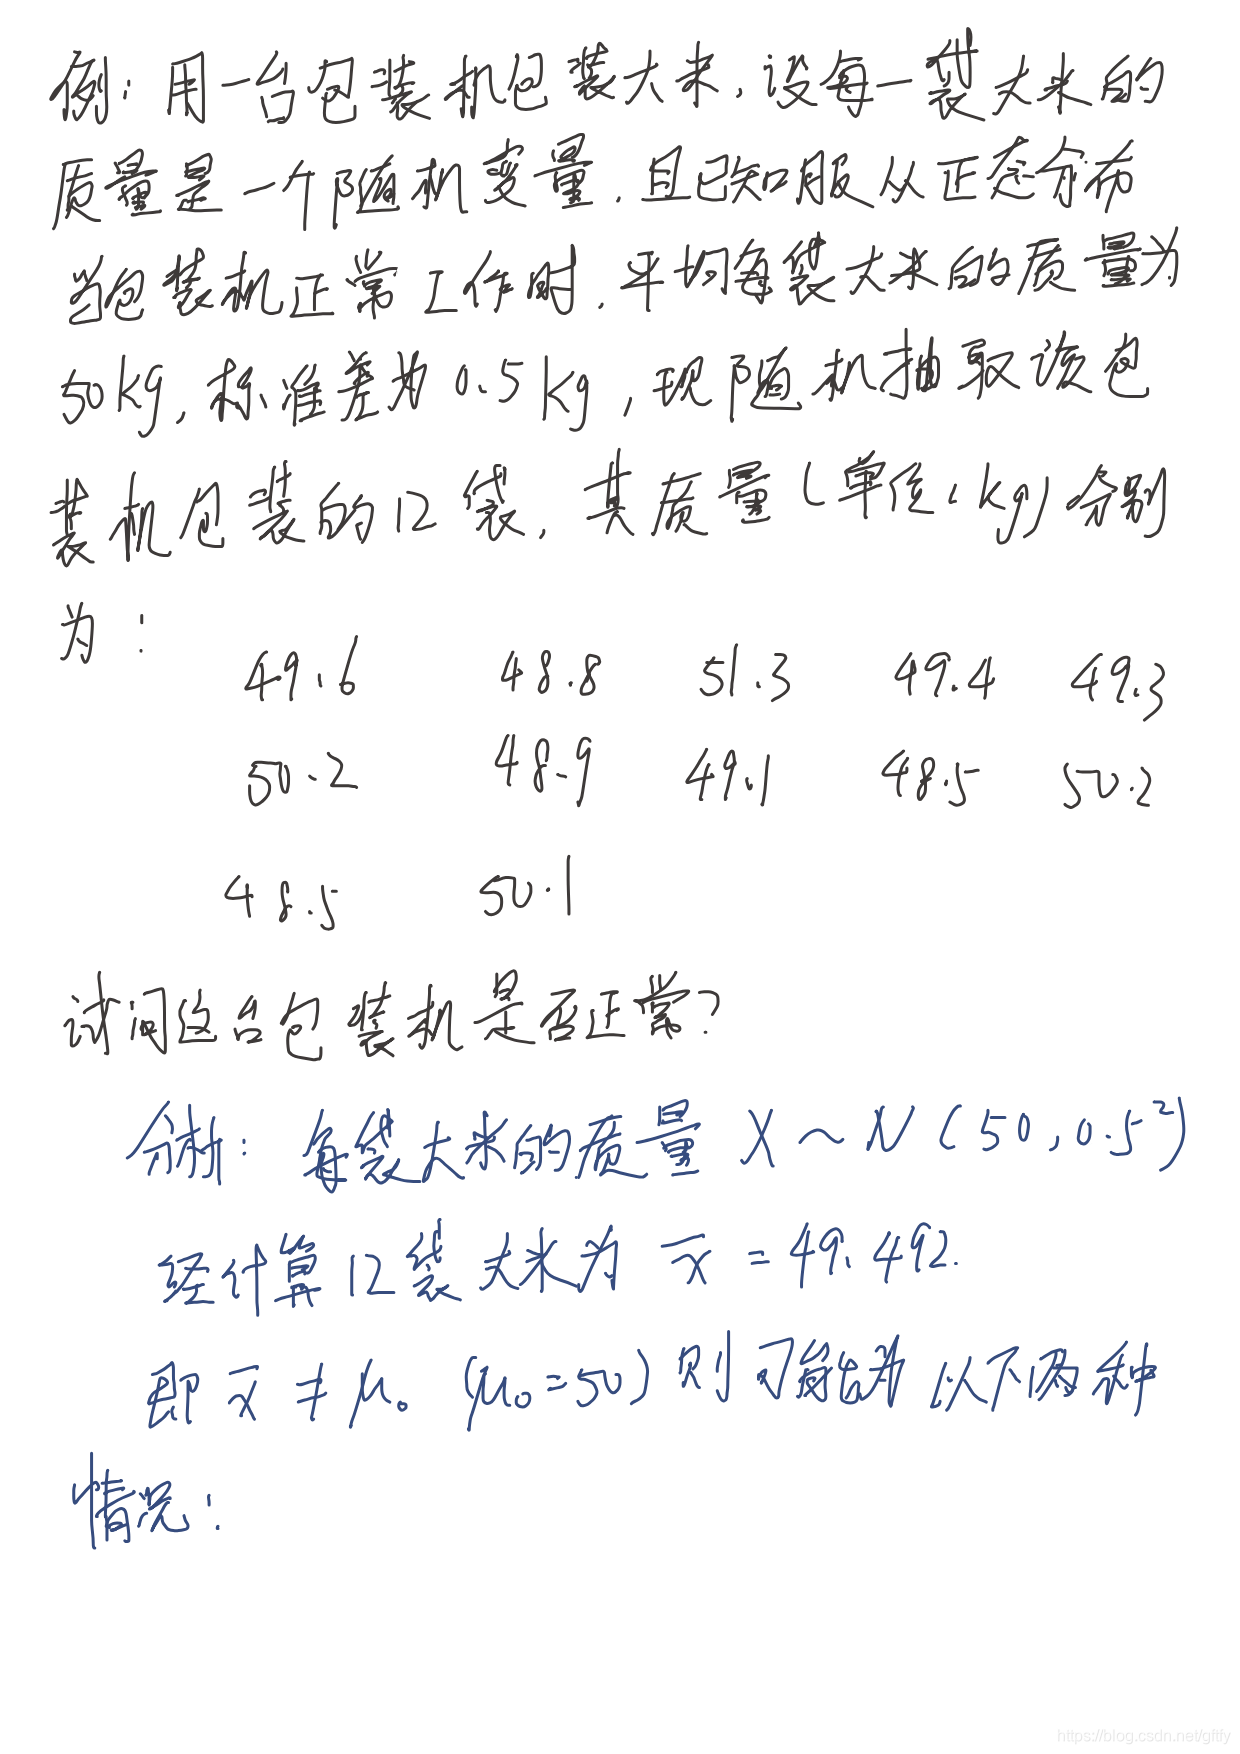 例：用一台包装机包装大米，设每一袋大米的
质量是一个随机变量，且已知服从正态分布
当包装机正常工作时，平均每袋大米的质量为
50kg，标准差为0.5kg，现随机抽取该包
装机包装的12袋，其质量（单位：kg）分别
为：
49.6 48.8 51.3 49.4 49.3
50.2 48.9 49.1 48.5 50.2
48.5 50.1
试问这台包装机是否正常？
分析：每袋大米的质量 X～N(50,0.5²)
经计算12袋大米为 x̄=49.492.
即 x̄≠μ₀ (μ₀=50)则可能为以下两种
情况：
https://blog.csdn.net/gftfy